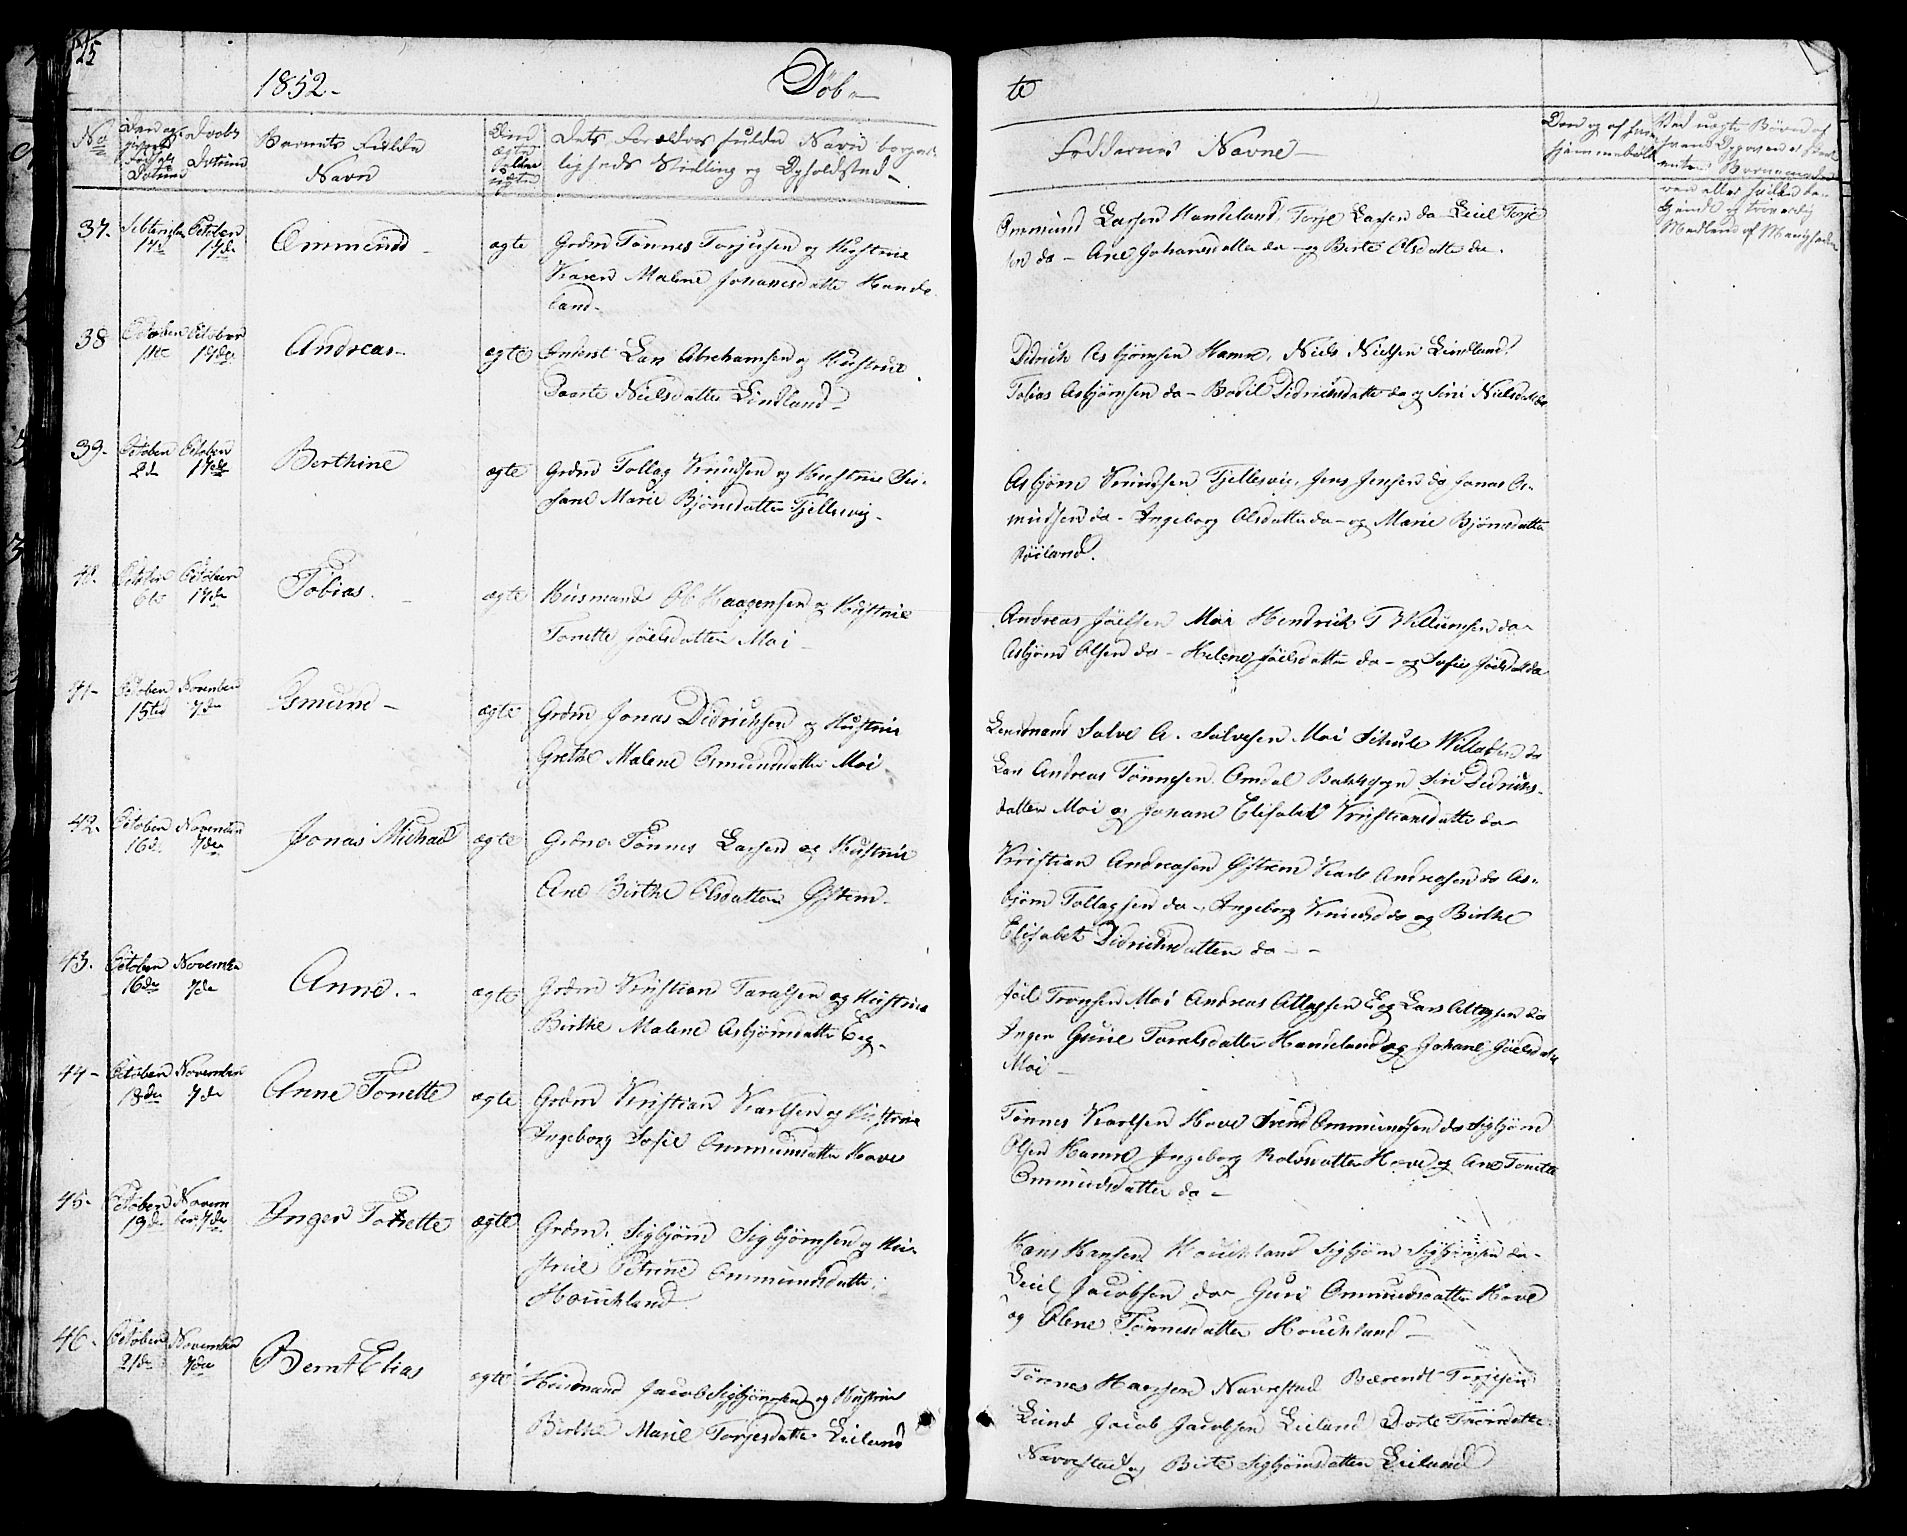 25
1852-
Døb-
te
No
Barnets Fulde
Navn
Dets Forældres fulde Navn borger-
ligheds Stilling og Opholdsted-
Faddernes Navne-
37.
September October
17de 17de
Ommund-
ægte
Grdm Tønnes Torjusen og Hustrue
Karen Malene Johannesdatter Hande-
land-
Ommund Larsen Handeland, Terje Larsen do Terje
sen do- Ane Johansdatter do- og Berte Olsdatter do.
38
October October
11te 17de
Andreas-
ægte
Inderst Lars Abrahamsen og Hustrue
Nielsdatter Lindland-
Didrich Asbjørnsen Hamre, Niels Nielsen Lindland.
Tobias Asbjørnsen do- Bodil Didrichsdatter do og Siri Nielsdatter
39-
October October
2d 17de
Berthine
ægte
Grdmd Tollag Knudsen og Hustrue
Marie Bjørnsdatter Fjellesvig-
Asbjørn Knudsen Fjellesvig, Jens Jensen do Jonas As-
mundsen do- Ingeborg Olsdatter do- og Marie Bjørnsdatter
October October
6te 17de
Tobias.
ægte
Husmand Ole Haagensen og Hustrue
Tonette Joelsdatter Moi-
Andreas Joelsen Moi Hendrick T Willumsen do-
Asbjørn Olsen do- Helene Joelsdatter do- og Sofie Joelsd do
41-
October November
15te 7de
Omund-
ægte
Grdm Jonas Didrichsen og Hustrue
Grethe Malene Omundsdatter Moi
Lensmand Salve A. Salvesen Moi Willadsen do
Lars Andreas Tønnesen Omdal Bakkesogn Siri Didrichs-
datter Moi og Johane Elisabet Kristiansdatter do-
42.
October November
16d 7de
Jonas Michael
ægte
Grdm. Tønnes Larsen og Hustrue
Ane Birthe Olsdatter Østrem-
Kristian Andreasen Østrem Karl Andreasen do As-
bjørn Tollagsen do-, Ingeborg Knudsd do og Birthe
Elisabet Didrichsdatter do -
43.
October November
16de 7de
Anne.-
ægte
Grdm Kristian Taralsen og Hustrue
Birthe Malene Asbjørnsdatter Eeg-
Joel Tronsen Moi Andreas Atlagsen Eeg Lars Atlagsen do
Inger Gurie Taralsdatter Handeland og Johane Joelsdatter
Moi-
44-
October November
18de 7de
Anne Tonette
ægte
Grdm Kristian Karlsen og Hustrue
Ingeborg Sofie Ommundsdatter Hove
Tønnes Karlsen Hove Svend Ommundsen do Sigbjørn
Olsen Hamre Ingeborg Hove og Ane Tonette
Ommundsdatter do-
45-
October Novem
19de ber 7de
Inger Tonette
ægte
Grdm. Sigbjørn Sigbjørnsen og Hu-
strue Petrine Ommundsdatter
Houchland
Hans Hansen Houchland Sigbjørn Sigbjørnsen do-
Jacobsen do- Guri Ommundsdatter Hove
og Olene Tønnesdatter Houchland-
46-
October November
21de 7de
Bernt Elias
ægte
Husmand Jacob Sigbjørnsen og Hustrue
Birthe Marie Torjesdatter Eieland
Tønnes Hansen Navrestad Bærendt Torjesen
Lund Jacob Jacobsen Eieland Dorte
Navrestad og Birte Sigbjørnsdatter Eieland